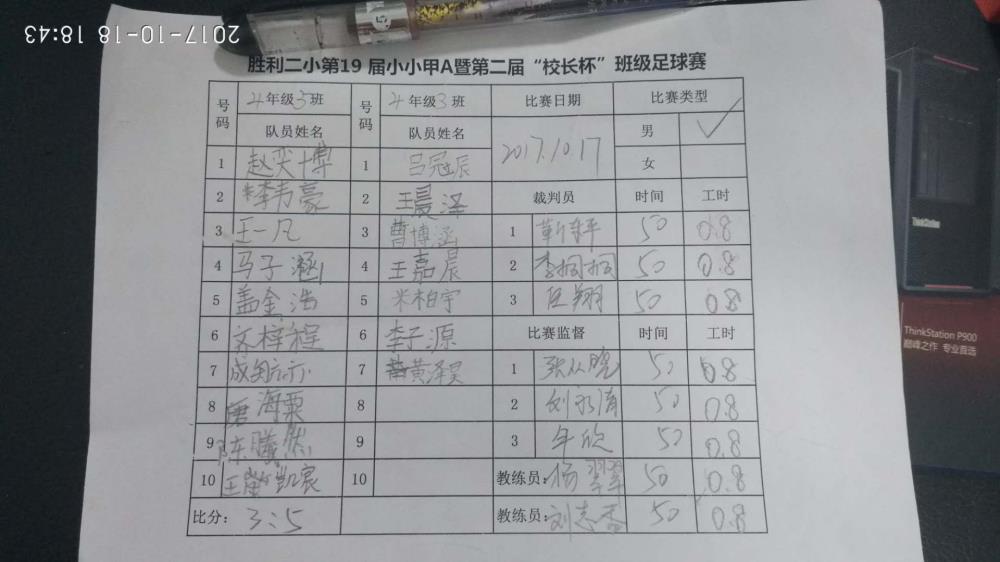 2017-10-18 18:43
胜利二小第19 届小小甲A暨第二届“校长杯”班级足球赛
号码 4年级5班 号码 4年级3班 比赛日期 比赛类型
队员姓名 队员姓名 2017.10.17 男 ✓
1 赵奕博 1 吕冠辰 女
2 李韦豪 2 王晨泽 裁判员 时间 工时
3 王一凡 3 曹博涵 1 50 0.8
4 马子涵 4 王嘉晨 2 李桐桐 50 0.8
5 盖金浩 5 米柏宇 3 翔 50 0.8
6 文梓程 6 李子源 比赛监督 时间 工时
7 7 黄泽昊 1 张从晓 50 0.8
8 唐海粟 8 2 刘永清 50 0.8
9 陈腾然 9 3 牟欣 50 0.8
10 王凯宸 10 教练员: 杨翠翠 50 0.8
比分: 3:5 教练员: 刘志香 50 0.8
ThinkStation
ThinkStation P900
巅峰之作 专业首选